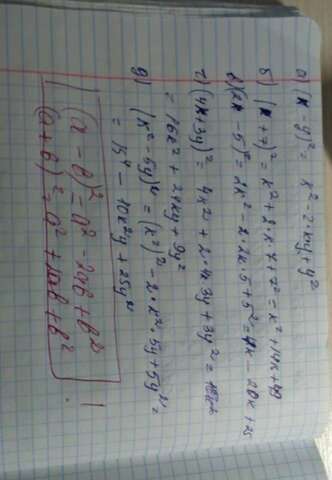 а) (x - y)² = x² - 2xy + y²
б) (x + 7)² = x² + 2·x·7 + 7² = x² + 14x + 49
в) (2x - 5)² = 2x² - 2·2x·5 + 5² = 4x - 20x + 25
г) (4x + 3y)² = 4x² + 2·4x·3y + 3y² =
= 16x² + 24xy + 9y²
д) (x² - 5y)² = (x²)² - 2·x²·5y + 5y² =
= x⁴ - 10x²y + 25y²
(a - b)² = a² - 2ab + b²
(a + b)² = a² + 2ab + b² !